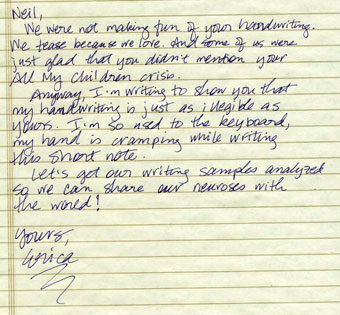 Neil,
We were not making fun of your handwriting.
We tease because we love. And some of us were
just glad that you didn't mention your
All My Children crisis.
Anyway, I'm writing to show you that
my handwriting is just as illegible as
yours. I'm so used to the keyboard,
my hand is cramping while writing
this short note.
Let's get our writing samples analyzed
so we can share our neuroses with
the world!
Yours,
Erica